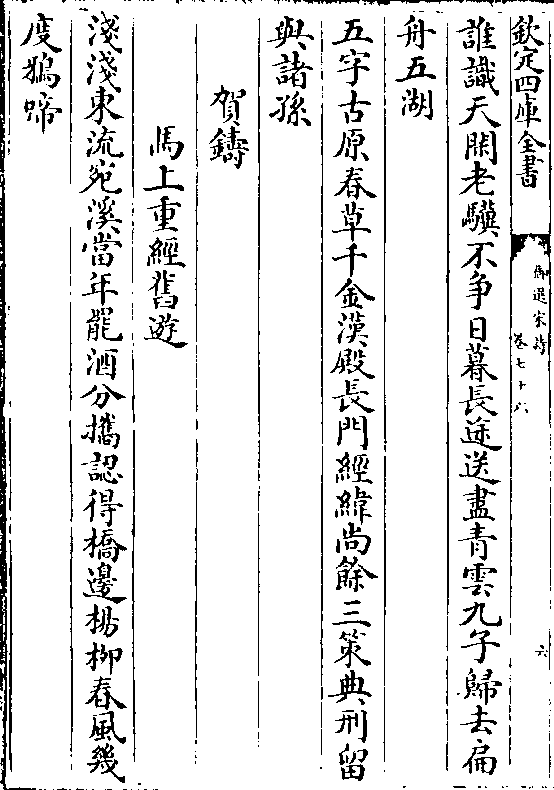 欽定四庫全書
御選宋詩
卷七十六
六
誰識天閑老驥不争日暮長途送盡青雲九子歸去扁
舟五湖
五字古原春草千金漢殿長門經緯尚餘三策典刑留
與諸孫
賀鑄
馬上重經舊遊
淺淺東流宛溪當年罷酒分攜認得橋邊楊柳春風幾
度鵶啼